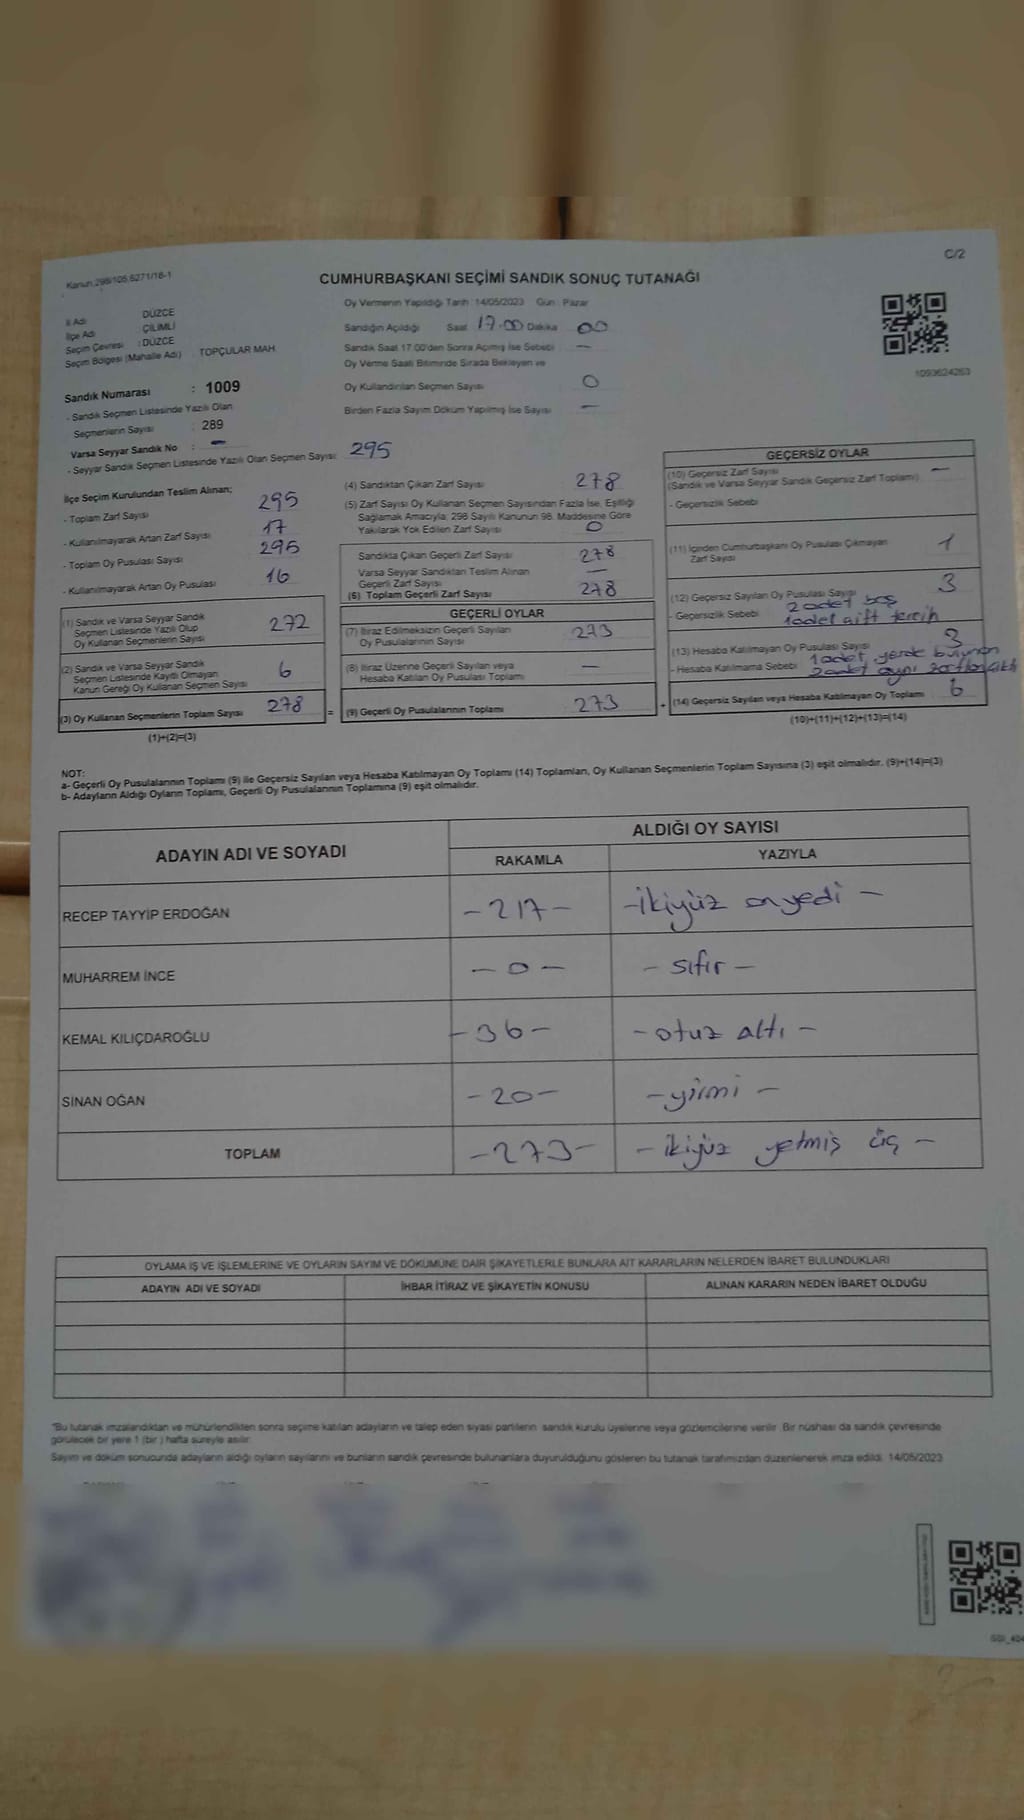 Kanun 298/105,6271/16-1
C/2
CUMHURBAŞKANI SEÇİMİ SANDIK SONUÇ TUTANAĞI
İl Adı DÜZCE
İlçe Adı ÇİLİMLİ
Seçim Çevresi : DÜZCE
Seçim Bölgesi (Mahalle Adı) TOPÇULAR MAH.
Sandık Numarası : 1009
- Sandık Seçmen Listesinde Yazılı Olan
Seçmenlerin Sayısı : 289
Varsa Seyyar Sandık No : -
- Seyyar Sandık Seçmen Listesinde Yazılı Olan Seçmen Sayısı: 295
Oy Vermenin Yapıldığı Tarih : 14/05/2023 Gün : Pazar
Sandığın Açıldığı Saat 17.00 Dakika 00
Sandık Saat 17.00'den Sonra Açılmış İse Sebebi -
Oy Verme Saati Bitiminde Sırada Bekleyen ve
Oy Kullandırılan Seçmen Sayısı 0
Birden Fazla Sayım Döküm Yapılmış İse Sayısı -
1093624263
İlçe Seçim Kurulundan Teslim Alınan;
- Toplam Zarf Sayısı 295
- Kullanılmayarak Artan Zarf Sayısı 17
- Toplam Oy Pusulası Sayısı 295
- Kullanılmayarak Artan Oy Pusulası 16
(1) Sandık ve Varsa Seyyar Sandık
Seçmen Listesinde Yazılı Olup
Oy Kullanan Seçmenlerin Sayısı 272
(2) Sandık ve Varsa Seyyar Sandık
Seçmen Listesinde Kayıtlı Olmayan
Kanun Gereği Oy Kullanan Seçmen Sayısı 6
(3) Oy Kullanan Seçmenlerin Toplam Sayısı 278
(1)+(2)=(3)
(4) Sandıktan Çıkan Zarf Sayısı 278
(5) Zarf Sayısı Oy Kullanan Seçmen Sayısından Fazla İse, Eşitliği
Sağlamak Amacıyla; 298 Sayılı Kanunun 98. Maddesine Göre
Yakılarak Yok Edilen Zarf Sayısı 0
Sandıkta Çıkan Geçerli Zarf Sayısı 278
Varsa Seyyar Sandıktan Teslim Alınan
Geçerli Zarf Sayısı -
(6) Toplam Geçerli Zarf Sayısı 278
GEÇERLİ OYLAR
(7) İtiraz Edilmeksizin Geçerli Sayılan
Oy Pusulalarının Sayısı 273
(8) İtiraz Üzerine Geçerli Sayılan veya
Hesaba Katılan Oy Pusulası Toplamı -
= (9) Geçerli Oy Pusulalarının Toplamı 273
GEÇERSİZ OYLAR
(10) Geçersiz Zarf Sayısı -
(Sandık ve Varsa Seyyar Sandık Geçersiz Zarf Toplamı)
- Geçersizlik Sebebi
(11) İçinden Cumhurbaşkanı Oy Pusulası Çıkmayan
Zarf Sayısı 1
(12) Geçersiz Sayılan Oy Pusulası Sayısı 3
- Geçersizlik Sebebi 2 adet boş
1 adet çift tercih
(13) Hesaba Katılmayan Oy Pusulası Sayısı 3
1 adet yerde bulunan
- Hesaba Katılmama Sebebi 2 adet aynı zarftan çıktı
+ (14) Geçersiz Sayılan veya Hesaba Katılmayan Oy Toplamı 6
(10)+(11)+(12)+(13)=(14)
NOT:
a- Geçerli Oy Pusulalarının Toplamı (9) ile Geçersiz Sayılan veya Hesaba Katılmayan Oy Toplamı (14) Toplamları, Oy Kullanan Seçmenlerin Toplam Sayısına (3) eşit olmalıdır. (9)+(14)=(3)
b- Adayların Aldığı Oyların Toplamı, Geçerli Oy Pusulalarının Toplamına (9) eşit olmalıdır.
ADAYIN ADI VE SOYADI
ALDIĞI OY SAYISI
RAKAMLA YAZIYLA
RECEP TAYYİP ERDOĞAN -217- -ikiyüz onyedi -
MUHARREM İNCE - 0 - - sıfır -
KEMAL KILIÇDAROĞLU -36- -otuz altı -
SİNAN OĞAN -20- -yirmi -
TOPLAM -273- - ikiyüz yetmiş üç -
OYLAMA İŞ VE İŞLEMLERİNE VE OYLARIN SAYIM VE DÖKÜMÜNE DAİR ŞİKAYETLERLE BUNLARA AİT KARARLARIN NELERDEN İBARET BULUNDUKLARI
ADAYIN ADI VE SOYADI İHBAR İTİRAZ VE ŞİKAYETİN KONUSU ALINAN KARARIN NEDEN İBARET OLDUĞU
*Bu tutanak imzalandıktan ve mühürlendikten sonra seçime katılan adayların ve talep eden siyasi partilerin sandık kurulu üyelerine veya gözlemcilerine verilir. Bir nüshası da sandık çevresinde
görülecek bir yere 1 (bir) hafta süreyle asılır.
Sayım ve döküm sonucunda adayların aldığı oyların sayılarını ve bunların sandık çevresinde bulunanlara duyurulduğunu gösteren bu tutanak tarafımızdan düzenlenerek imza edildi. 14/05/2023